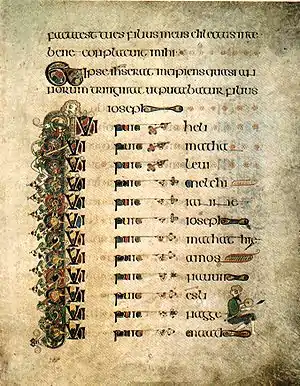 facta est tu es filius meus dilectus in te
bene conplacuit mihi
ipse erat incipiens quasi an
norum triginta ut putabatur filius
ioseph
QUI fuit heli
QUI fuit matthat
QUI fuit leui
QUI fuit melchi
QUI fuit
QUI fuit ioseph
QUI fuit mathathie
QUI fuit amos
QUI fuit nauum
QUI fuit esli
QUI fuit nagge
QUI fuit